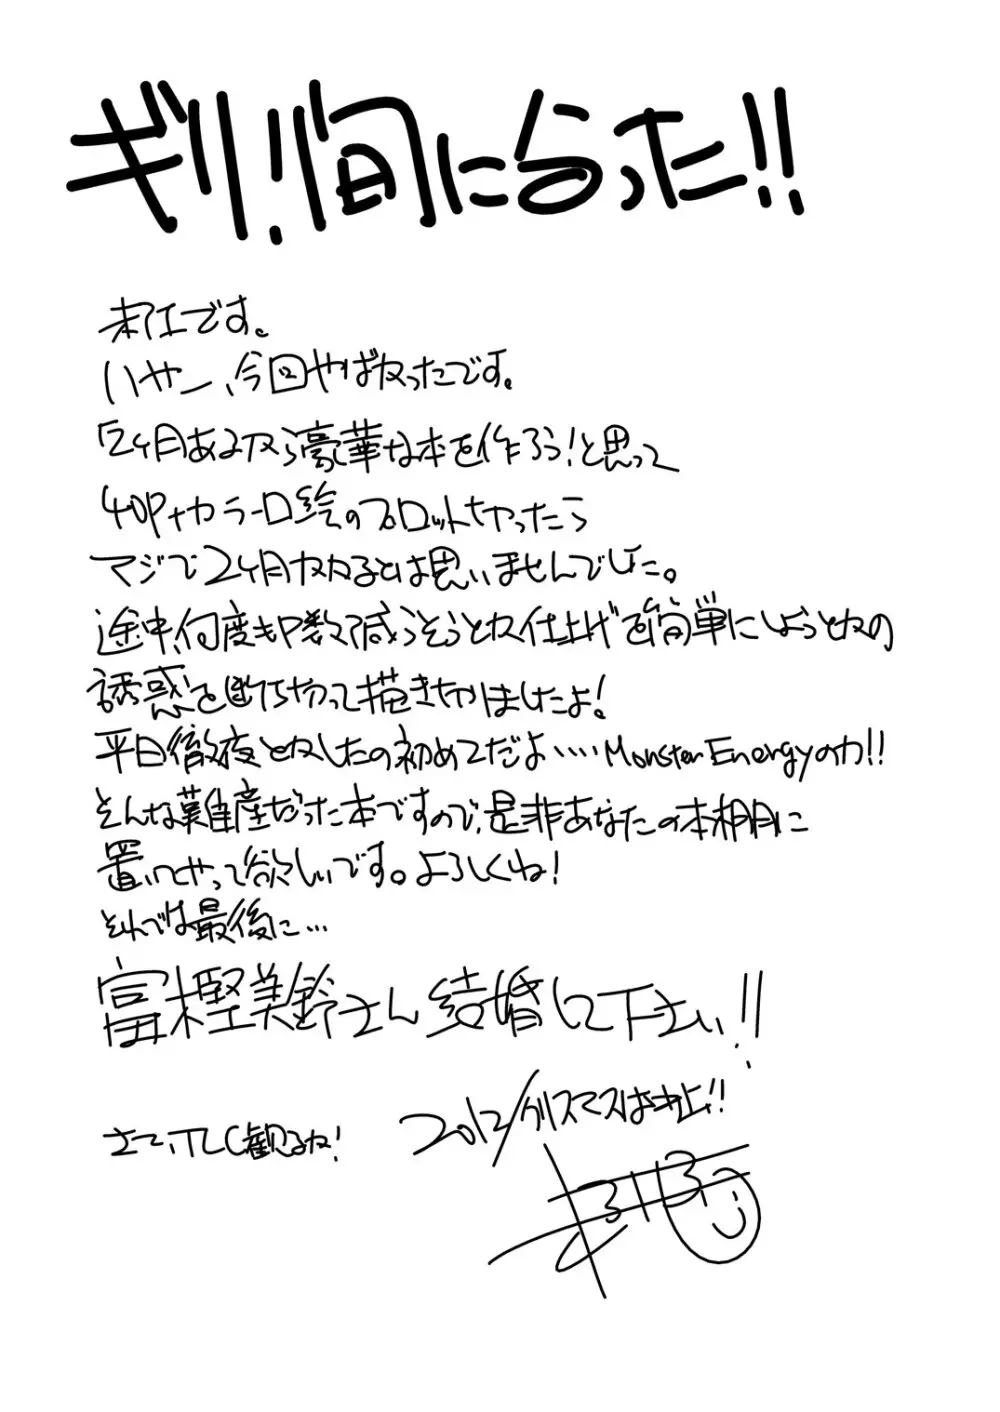 ギリ!間に合った!!
朱江です。
いやー、今回やばかったです。
「2ヶ月あるから豪華な本を作ろう!と思って
40P+カラー口絵のプロットもやったら
マジで2ヶ月かかるとは思いませんでした。
途中、何度もP数減らそうとか仕上げを簡単にしようとかの
誘惑を断ち切って描ききりましたよ!
平日徹夜とかしたの初めてだよ‥‥Monster Energyの力!!
そんな難産だった本ですので、是非あなたの本棚に
置いてやって欲しいです。よろしくね!
それでは最後に…
富樫美鈴さん結婚して下さい!!
さて、TLC観るね! 2012/クリスマスは中止!!